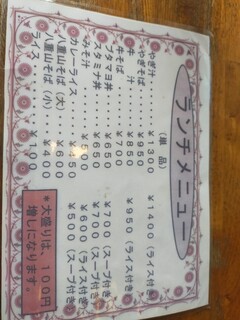 ランチメニュー
(単品)
やぎ汁 ￥1300 ￥1400(ライス付き)
やぎそば ￥950
牛汁 ￥950(ライス付き)
牛そば ￥700
ブタマヨ丼 ￥700(スープ付き)
スタミナ丼 ￥700(スープ付き)
みそ汁
カレーライス ￥500(スープ付き)
八重山そば(大)
八重山そば(小)
ライス ￥100
*大盛りは、100円
増しになります。